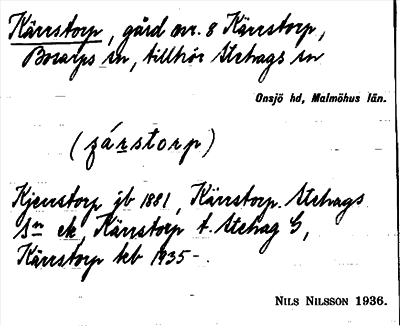 Kärrstorp, gård nr. 8 Kärrstorp,
Borarps sn, tillhör Stehags sn
Onsjö hd, Malmöhus län.
(ʃárstorp)
Kjerrstorp jb 1881, Kärrstorp. Stehags
sn ek, Kärrstorp t. Stehag G,
Kärrstorp kb 1935-.
NILS NILSSON 1936.